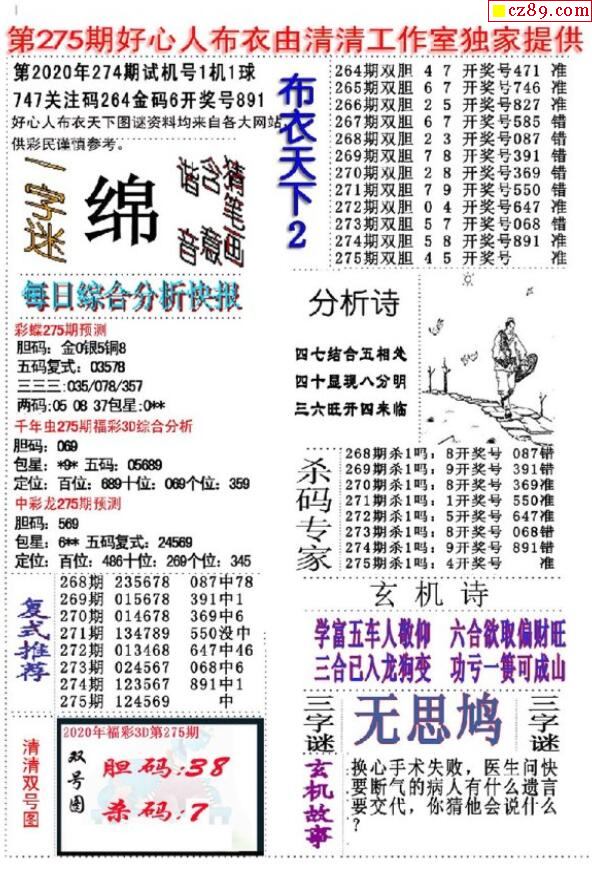 cz89.com
第275期好心人布衣由清清工作室独家提供
第2020年274期试机号1机1球
747关注码264金码6开奖号891
好心人布衣天下图谜资料均来自各大网站
供彩民谨慎参考。
一字迷
绵
谐音
含意
猜笔画
每日综合分析快报
彩蝶275期预测
胆码：金0银5铜8
五码复式：03578
三三三:035/078/357
两码:05 08 37包星:0**
千年虫275期福彩3D综合分析
胆码：069
包星：*9* 五码：05689
定位：百位：689十位：069个位：359
中彩龙275期预测
胆码：569
包星：6** 五码复式：24569
定位：百位：486十位：269个位：345
复式推荐
268期 235678 087中78
269期 015678 391中1
270期 014678 369中6
271期 134789 550没中
272期 013468 647中46
273期 024567 068中6
274期 123567 891中1
275期 124569 中
清清双号图
2020年福彩3D第275期
双号图
胆码:38
杀码:7
布衣天下2
264期双胆 4 7 开奖号471 准
265期双胆 6 7 开奖号746 准
266期双胆 2 5 开奖号827 准
267期双胆 6 7 开奖号585 错
268期双胆 2 3 开奖号087 错
269期双胆 7 8 开奖号391 错
270期双胆 2 8 开奖号369 错
271期双胆 7 9 开奖号550 错
272期双胆 0 4 开奖号647 准
273期双胆 5 7 开奖号068 错
274期双胆 5 8 开奖号891 准
275期双胆 4 5 开奖号 准
分析诗
四七结合五相处
四十显现八分明
三六旺开四来临
杀码专家
268期杀1吗：8开奖号 087错
269期杀1吗：9开奖号 391错
270期杀1吗：8开奖号 369准
271期杀1吗：1开奖号 550准
272期杀1吗：5开奖号 647准
273期杀1吗：8开奖号 068错
274期杀1吗：9开奖号 891错
275期杀1吗：4开奖号 准
玄机诗
学富五车人敬仰 六合欲取偏财旺
三合已入龙狗变 功亏一篑可成山
三字谜
无思鸠
三字谜
玄机故事
换心手术失败，医生问快
要断气的病人有什么遗言
要交代，你猜他会说什么
？